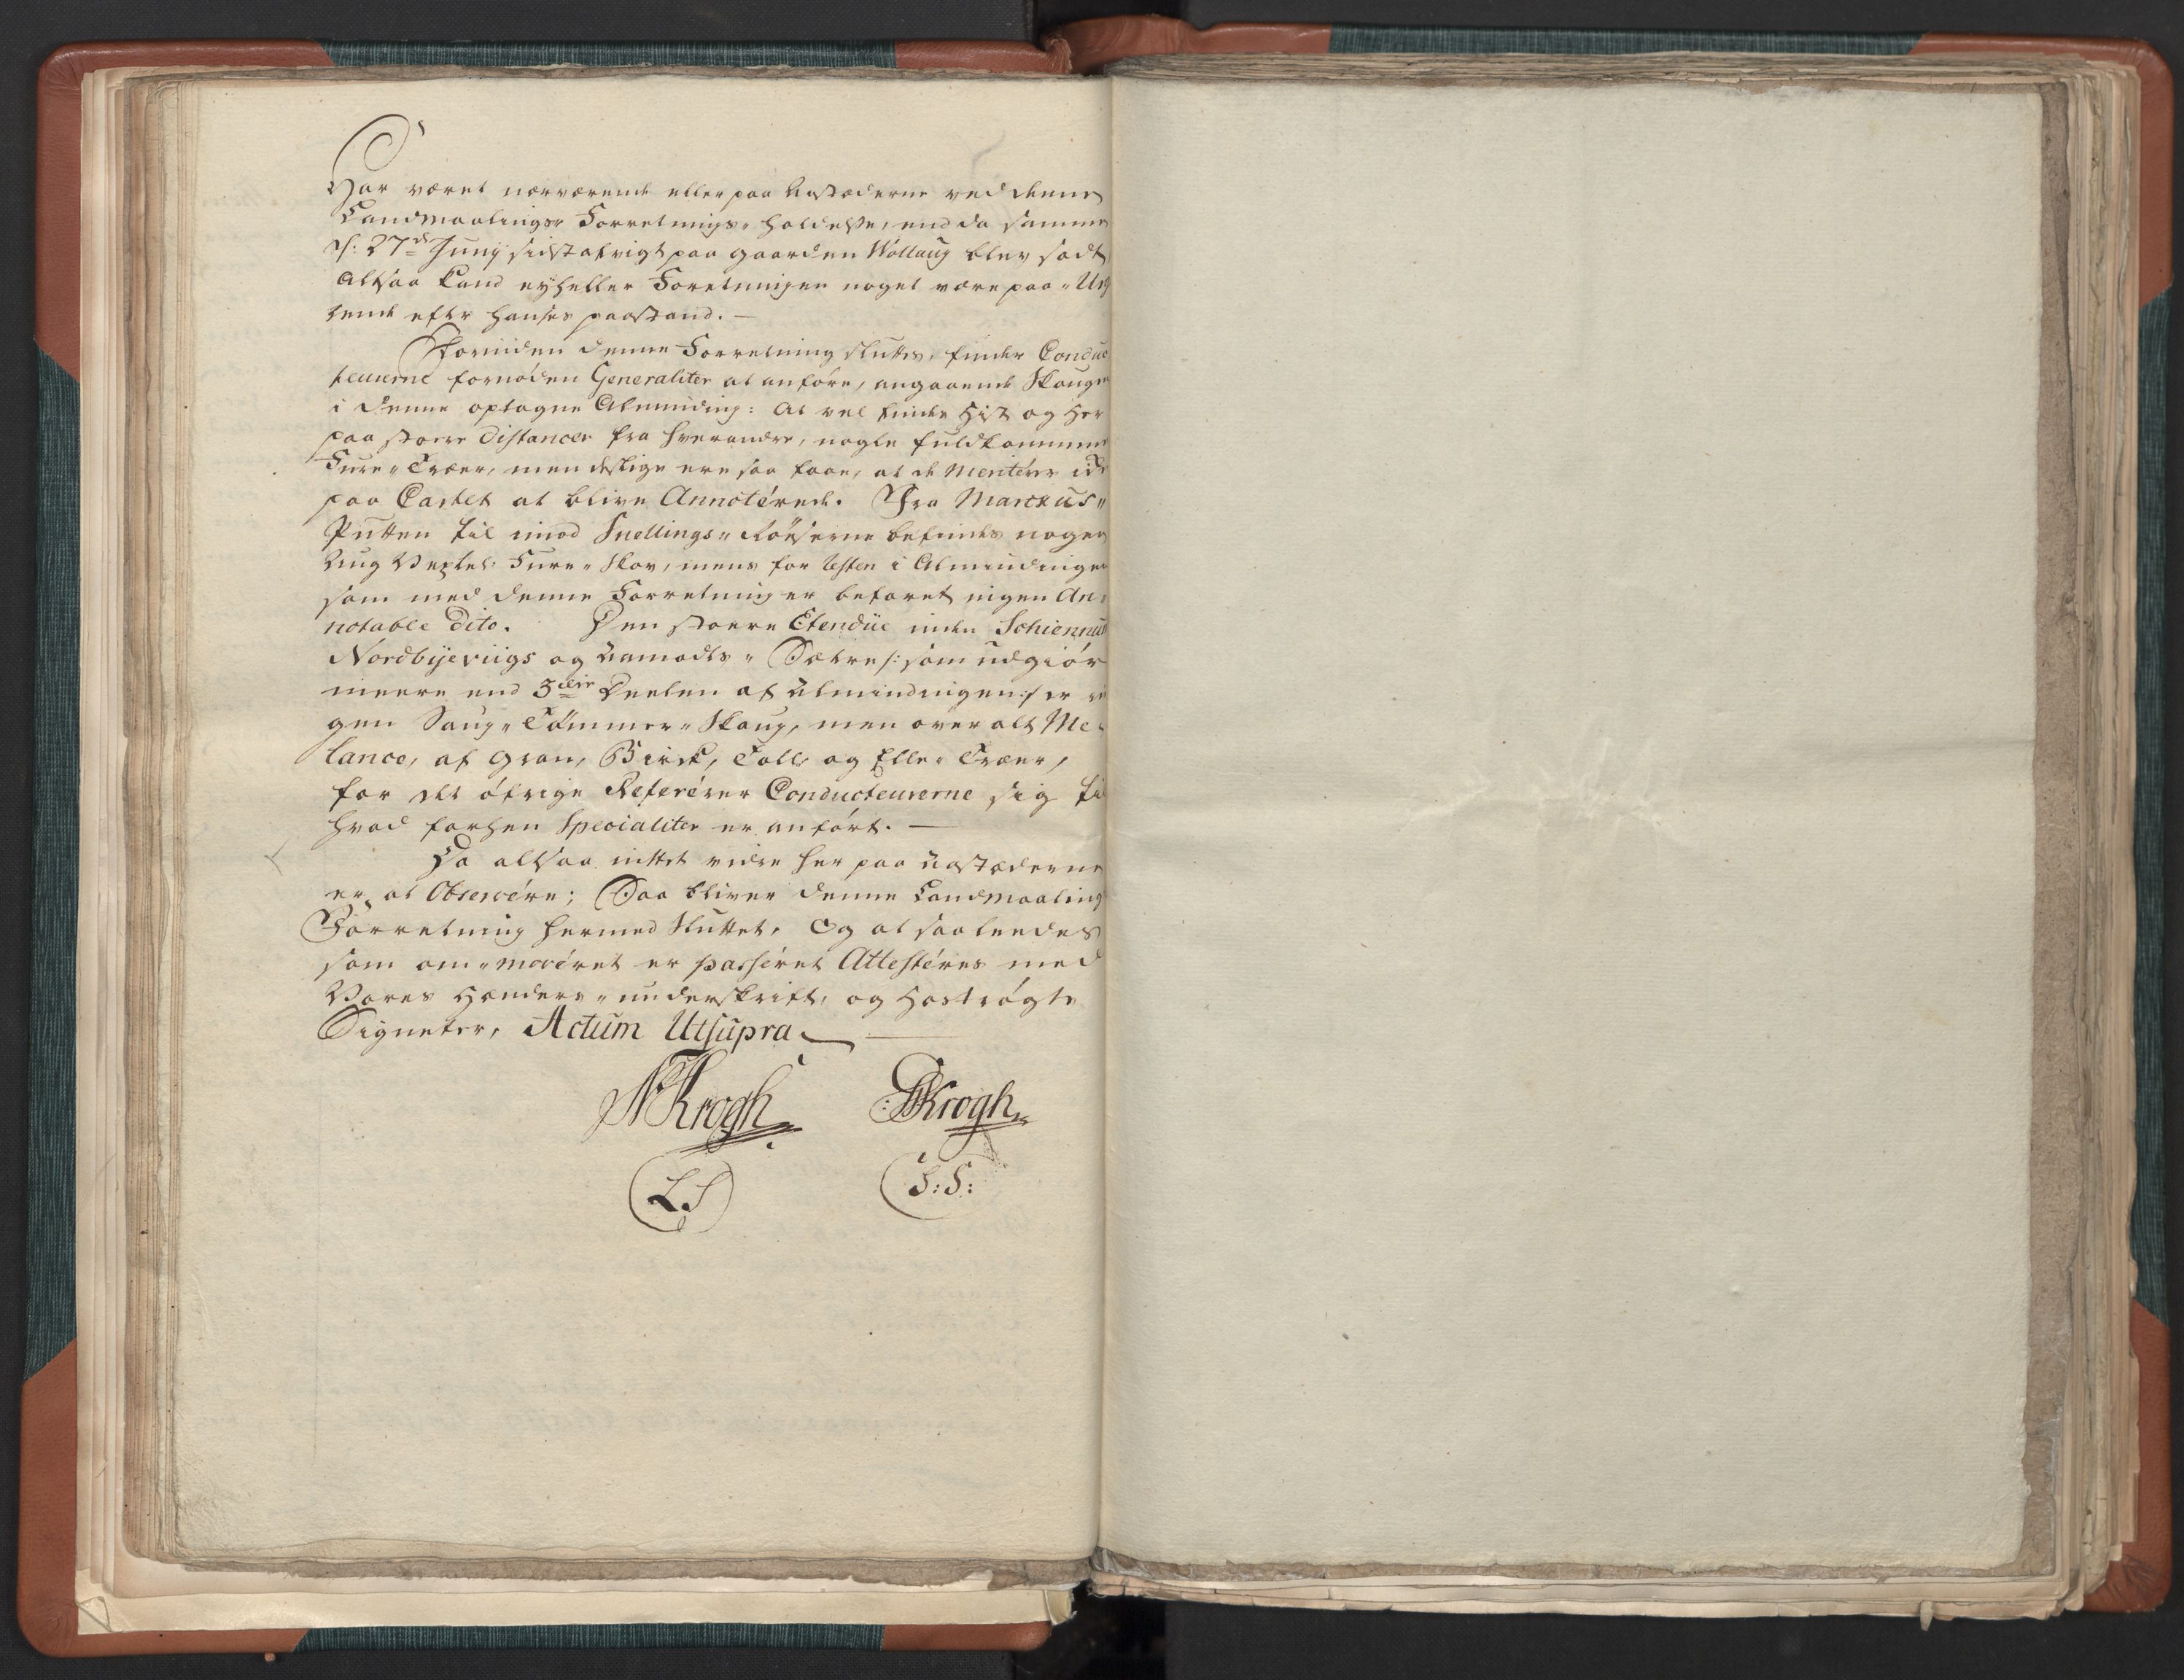 Har været nærværende eller paa Aastæderne ved denne
Landmaalings„ Forretnings„ holdelse, end da samme
d: 27de Junij sidstafvigt paa gaarden Wollaug blev sadt
altsaa kand eyheller Forretningen noget være paa„
efter hanses paastand. —
Forinden denne Forretning sluttes, finder Conduc
teurerne fornöden Generaliter at anföre, angaaende Skougen
i denne optagne Alminding: at vel findes Hist og Her
paa stoere Distancer fra hverandre, nogle fuldkommene
Fure„ Træer, men deslige ere saa faae, at de Meritérer icke
paa Cartet at blive Annotérede. Fra Marckus„
Putten til imod Snellings„ Röeserne befindes nogen
Ung Vextel Fure„ Skov, mens for Resten i Almindingen
som med denne Forretning er befaret ingen An„
notable dito. Den stoere Etendüe inden Schiennud
Nordbyeviigs og Aamodts„ Sætre /: som udgiör
meere end 3die Deelen af Almindingen :/ er in
gen Saug„ Tömmer„ Skoug, men over alt Me„
lance, af Gran, Birck, Toll og Elle„ Træer,
for det övrige Referérer Conducteurerne sig til
hvad forhen Specialiter er anfört. —
Da altsaa intet videre her paa Aastæderne
er at Observére; Saa bliver denne Landmaaling
Forretning hermed sluttet, Og at saaleedes
som om„movéret er passéret Attestéres med
Vores Hænders„ underskrift, og Hoströgte
Signeter, Actum Utsupra
NKrogh Krogh
L.S L:S: